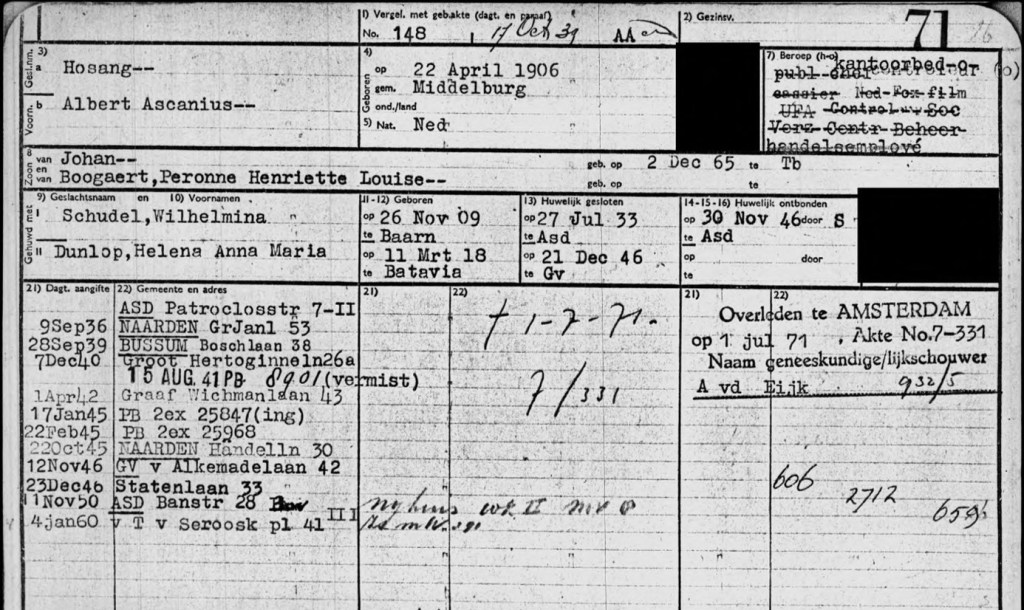 1) Vergel. met geb.akte (dagt. en paraaf)
No. 148 17 Oct 39 AA
2) Gezinsv.
71
3)
Gesl.nm. a Hosang--
Voorn. b Albert Ascanius--
4)
Geboren
op 22 April 1906
gem. Middelburg
ond./land
5) Nat. Ned
7) Beroep (h-o)
kantoorbed-o-
cassier Ned-Fox-film
UFA Control Soc
Verz Centr Beheer
handelsemployé
8 Zoon van en van
Johan-- geb. op 2 Dec 65 te Tb
Boogaert,Peronne Henriette Louise-- geb. op te
Gehuwd met
9) Geslachtsnaam en 10) Voornamen
I Schudel,Wilhelmina
II Dunlop,Helena Anna Maria
11-12) Geboren
op 26 Nov 09
te Baarn
op 11 Mrt 18
te Batavia
13) Huwelijk gesloten
op 27 Jul 33
te Asd
op 21 Dec 46
te Gv
14-15-16) Huwelijk ontbonden
op 30 Nov 46 door S
te Asd
op door
te
21) Dagt. aangifte 22) Gemeente en adres
ASD Patroclosstr 7-II
9Sep36 NAARDEN GrJanl 53
28Sep39 BUSSUM Boschlaan 38
7Dec40 Groot Hertoginneln26a
15 AUG. 41 PB 8901 (vermist)
1Apr42 Graaf Wichmanlaan 43
17Jan45 PB 2ex 25847(ing)
22Feb45 PB 2ex 25968
22Oct45 NAARDEN Händelln 30
12Nov46 GV v Alkemadelaan 42
23Dec46 Statenlaan 33
11Nov50 ASD Banstr 28
4jan60 v T v Seroosk pl 41 III
21) 22)
† 1-7-71.
7/331
21) 22)
Overleden te AMSTERDAM
op 1 jul 71 . Akte No.7-331
Naam geneeskundige/lijkschouwer
A vd Eijk 932/5
606
2712